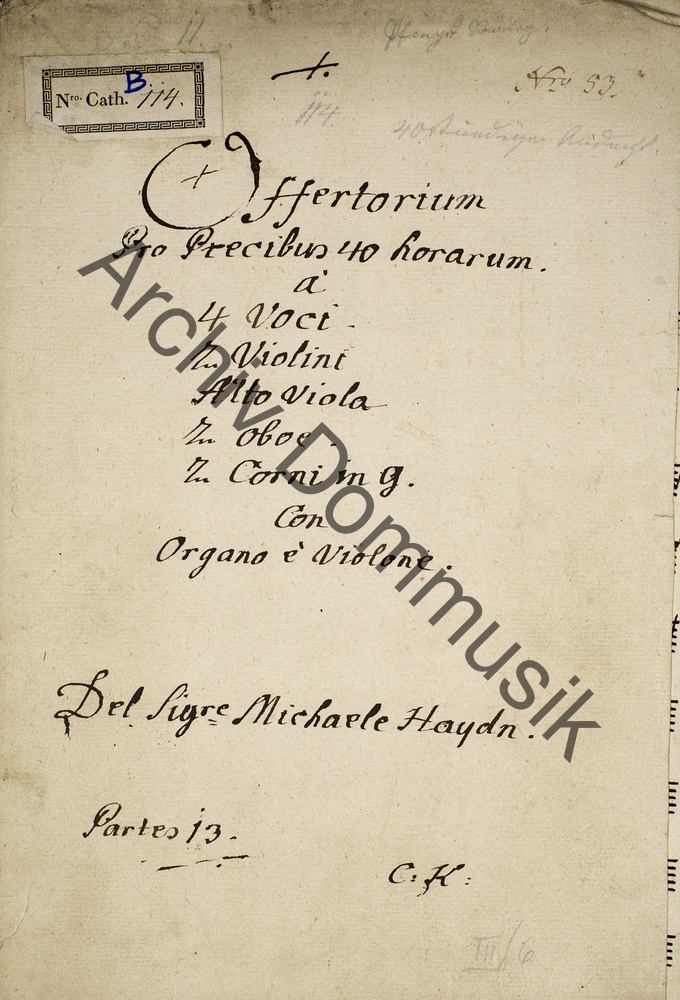 11.
Nro. Cath. B 114.
Nro 53.
114
40 stündigen Andacht
Offertorium
Pro Precibus 40 horarum.
a
4 Voci.
2 Violini
Alto Viola
2 Oboe.
2 Corni in G.
Con
Organo è Violone.
Del Sigre Michaele Haydn.
Partes 13.
C: K:
III/6
Archiv Dommusik